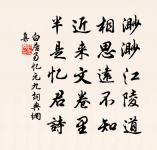 渺渺江陵道
相思遠不知
近來文卷里
半是忆君詩
白居易忆元九詞典網
集